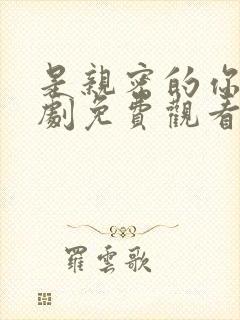 是親密的你
劇免費觀看
羅雲歌